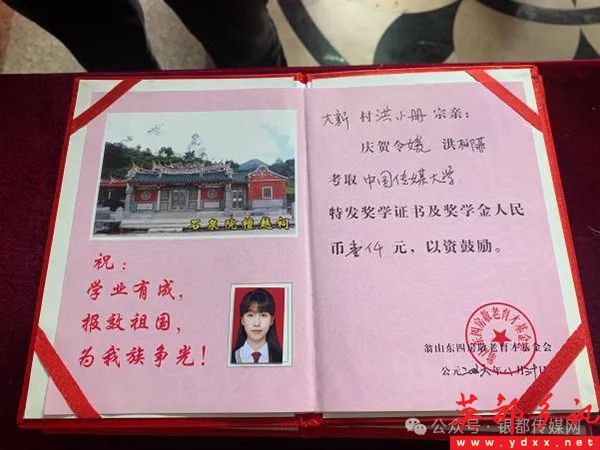 石泉院檀越祠
祝：
学业有成，
报效祖国，
为我族争光！
大新 村 洪小册 宗亲：
庆贺令媛 洪柳
考取 中国传媒大学
特发奖学证书及奖学金人民
币 壹仟 元，以资鼓励。
翁山东四房敬老育才基金会
翁山东四房敬老育才基金会
公元
公众号·银都传媒网
英都乡讯
www.ydxx.net